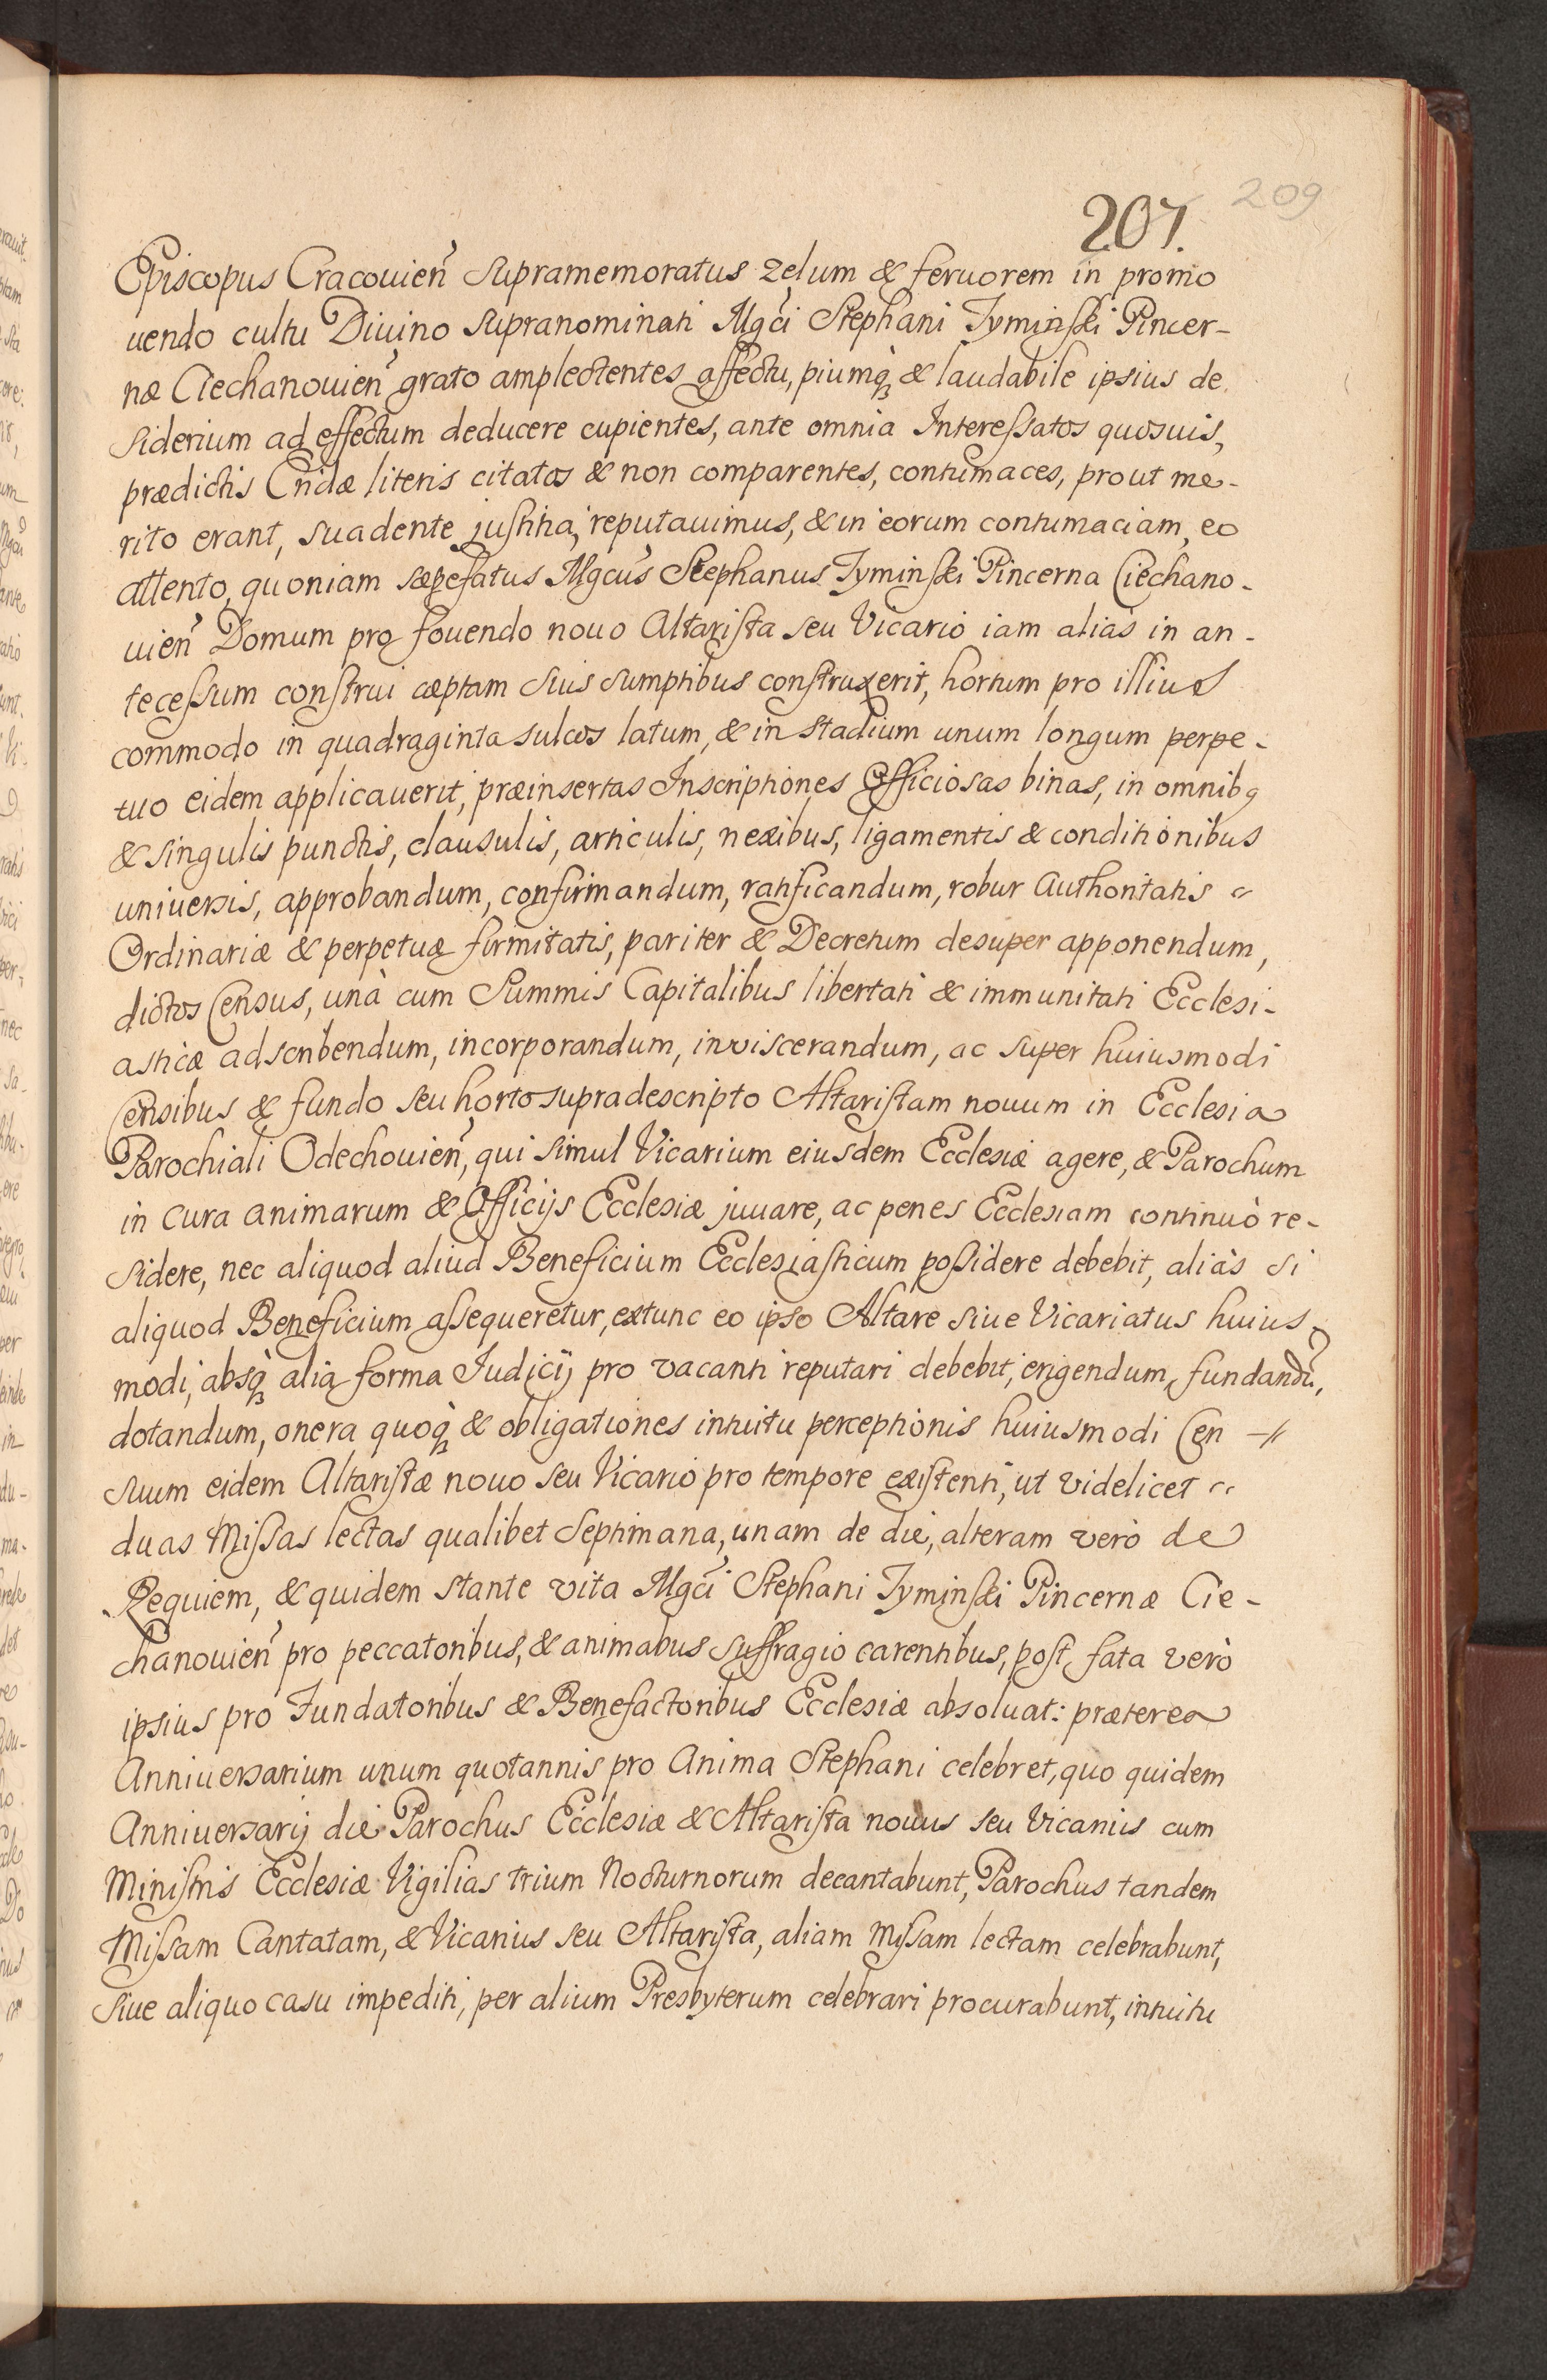 207.
209
Episcopus Cracouien̄ supramemoratus zelum & feruorem in promo
uendo cultu Diuino supranominati Mgci Stephani Tyminski Pincer-
næ Ciechanouien̄ grato amplectentes affectu, piumq̃ & laudabile ipsius de
siderium ad effectum deducere cupientes, ante omnia Interessatos quosuis,
prædictis Cridæ literis citatos & non comparentes, contumaces, prout me-
rito erant, suadente justitia, reputauimus, & in eorum contumaciam, eo
attento, quoniam sæpefatus Mgcus Stephanus Tyminski Pincerna Ciechano-
uien̄ Domum pro fouendo nouo Altarista seu Vicario iam aliàs in an-
tecessum construi cæptam suis sumptibus construxerit, hortum pro illius
commodo in quadraginta sulcos latum, & in stadium unum longum perpe-
tuo eidem applicauerit, præinsertas Inscriptiones Officiosas binas, in omnibq
& singulis punctis, clausulis, articulis, nexibus, ligamentis & conditionibus
uniuersis, approbandum, confirmandum, ratificandum, robur Authoritatis
Ordinariæ & perpetuæ firmitatis, pariter & Decretum desuper apponendum,
dictos Census, unà cum Summis Capitalibus libertati & immunitati Ecclesi-
asticæ adscribendum, incorporandum, inviscerandum, ac super huiusmodi
Censibus & fundo seu horto supradescripto Altaristam nouum in Ecclesia
Parochiali Odechouien̄, qui simul Vicarium eiusdem Ecclesiæ agere, & Parochum
in cura animarum & Officijs Ecclesiæ juuare, ac penes Ecclesiam continuò re-
sidere, nec aliquod aliud Beneficium Ecclesiasticum possidere debebit, aliàs si
aliquod Beneficium assequeretur, extunc eo ipso Altare siue Vicariatus huius-
modi, absq̃ alia forma Iudicij pro vacanti reputari debebit, erigendum, fundandū,
dotandum, onera quoq̃ & obligationes intuitu perceptionis huiusmodi Cen-
suum eidem Altaristæ nouo seu Vicario pro tempore existenti, ut videlicet
duas Missas lectas qualibet Septimana, unam de die, alteram verò de
Requiem, & quidem stante vita Mgci Stephani Tyminski Pincernæ Cie-
chanouien̄ pro peccatoribus, & animabus suffragio carentibus, post fata verò
ipsius pro Fundatoribus & Benefactoribus Ecclesiæ absoluat: præterea
Anniuersarium unum quotannis pro Anima Stephani celebret, quo quidem
Anniuersarij die Parochus Ecclesiæ & Altarista nouus seu Vicarius cum
Ministris Ecclesiæ Vigilias trium Nocturnorum decantabunt, Parochus tandem
Missam Cantatam, & Vicarius seu Altarista, aliam Missam lectam celebrabunt,
siue aliquo casu impediti, per alium Presbyterum celebrari procurabunt, intuitu